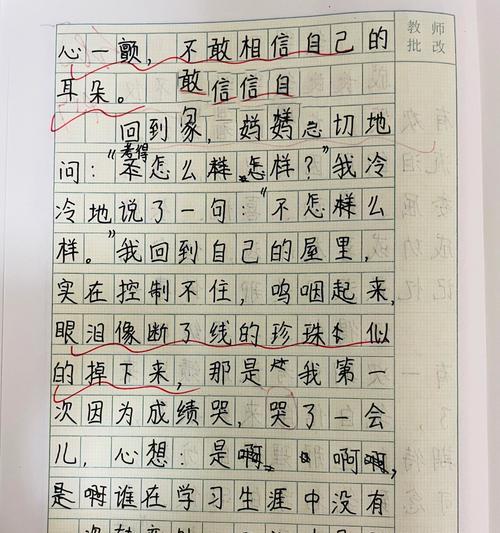 教师
批改
心一颤,不敢相信自己的
耳朵。 敢信信自
回到家,妈妈急切地
问:“考得怎么样,怎样?”我冷
冷地说了一句:“不怎样么
样。”我回到自己的屋里,
实在控制不住,呜咽起来,
眼泪像断了线的珍珠似
的掉下来,那是我第一
次因为成绩哭,哭了一会
儿,心想:是啊,啊啊,
是啊谁在学习生涯中没有